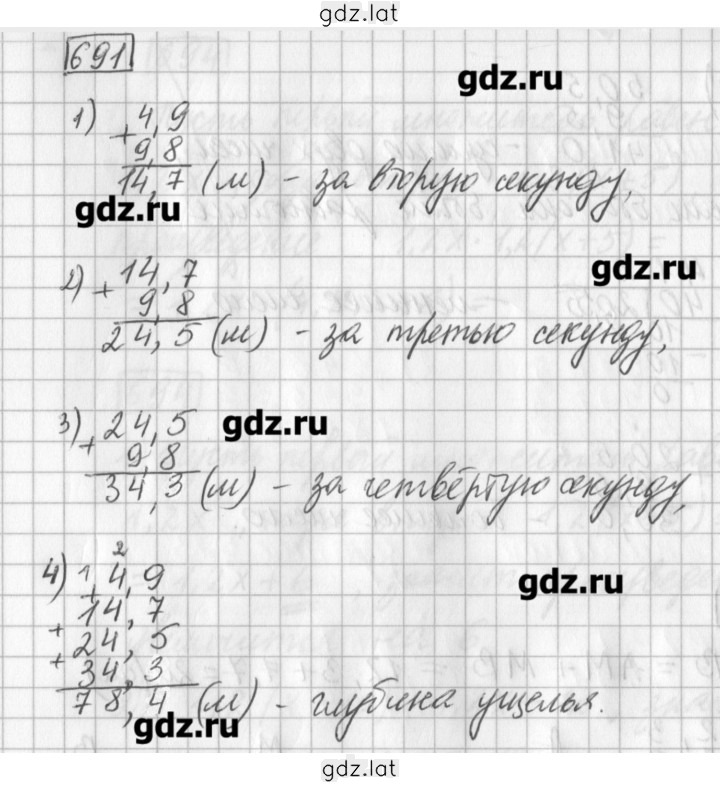 gdz.lat
691
gdz.ru
1) + 4,9
9,8
14,7 (м) - за вторую секунду,
gdz.ru
gdz.ru
2) + 14,7
9,8
24,5 (м) - за третью секунду,
3) + 24,5
gdz.ru
9,8
34,3 (м) - за четвёртую секунду,
2
4) 1 4,9
gdz.ru
+ 14,7
+ 24,5
+ 34,3
78,4 (м) - глубина ущелья.
gdz.ru
gdz.lat